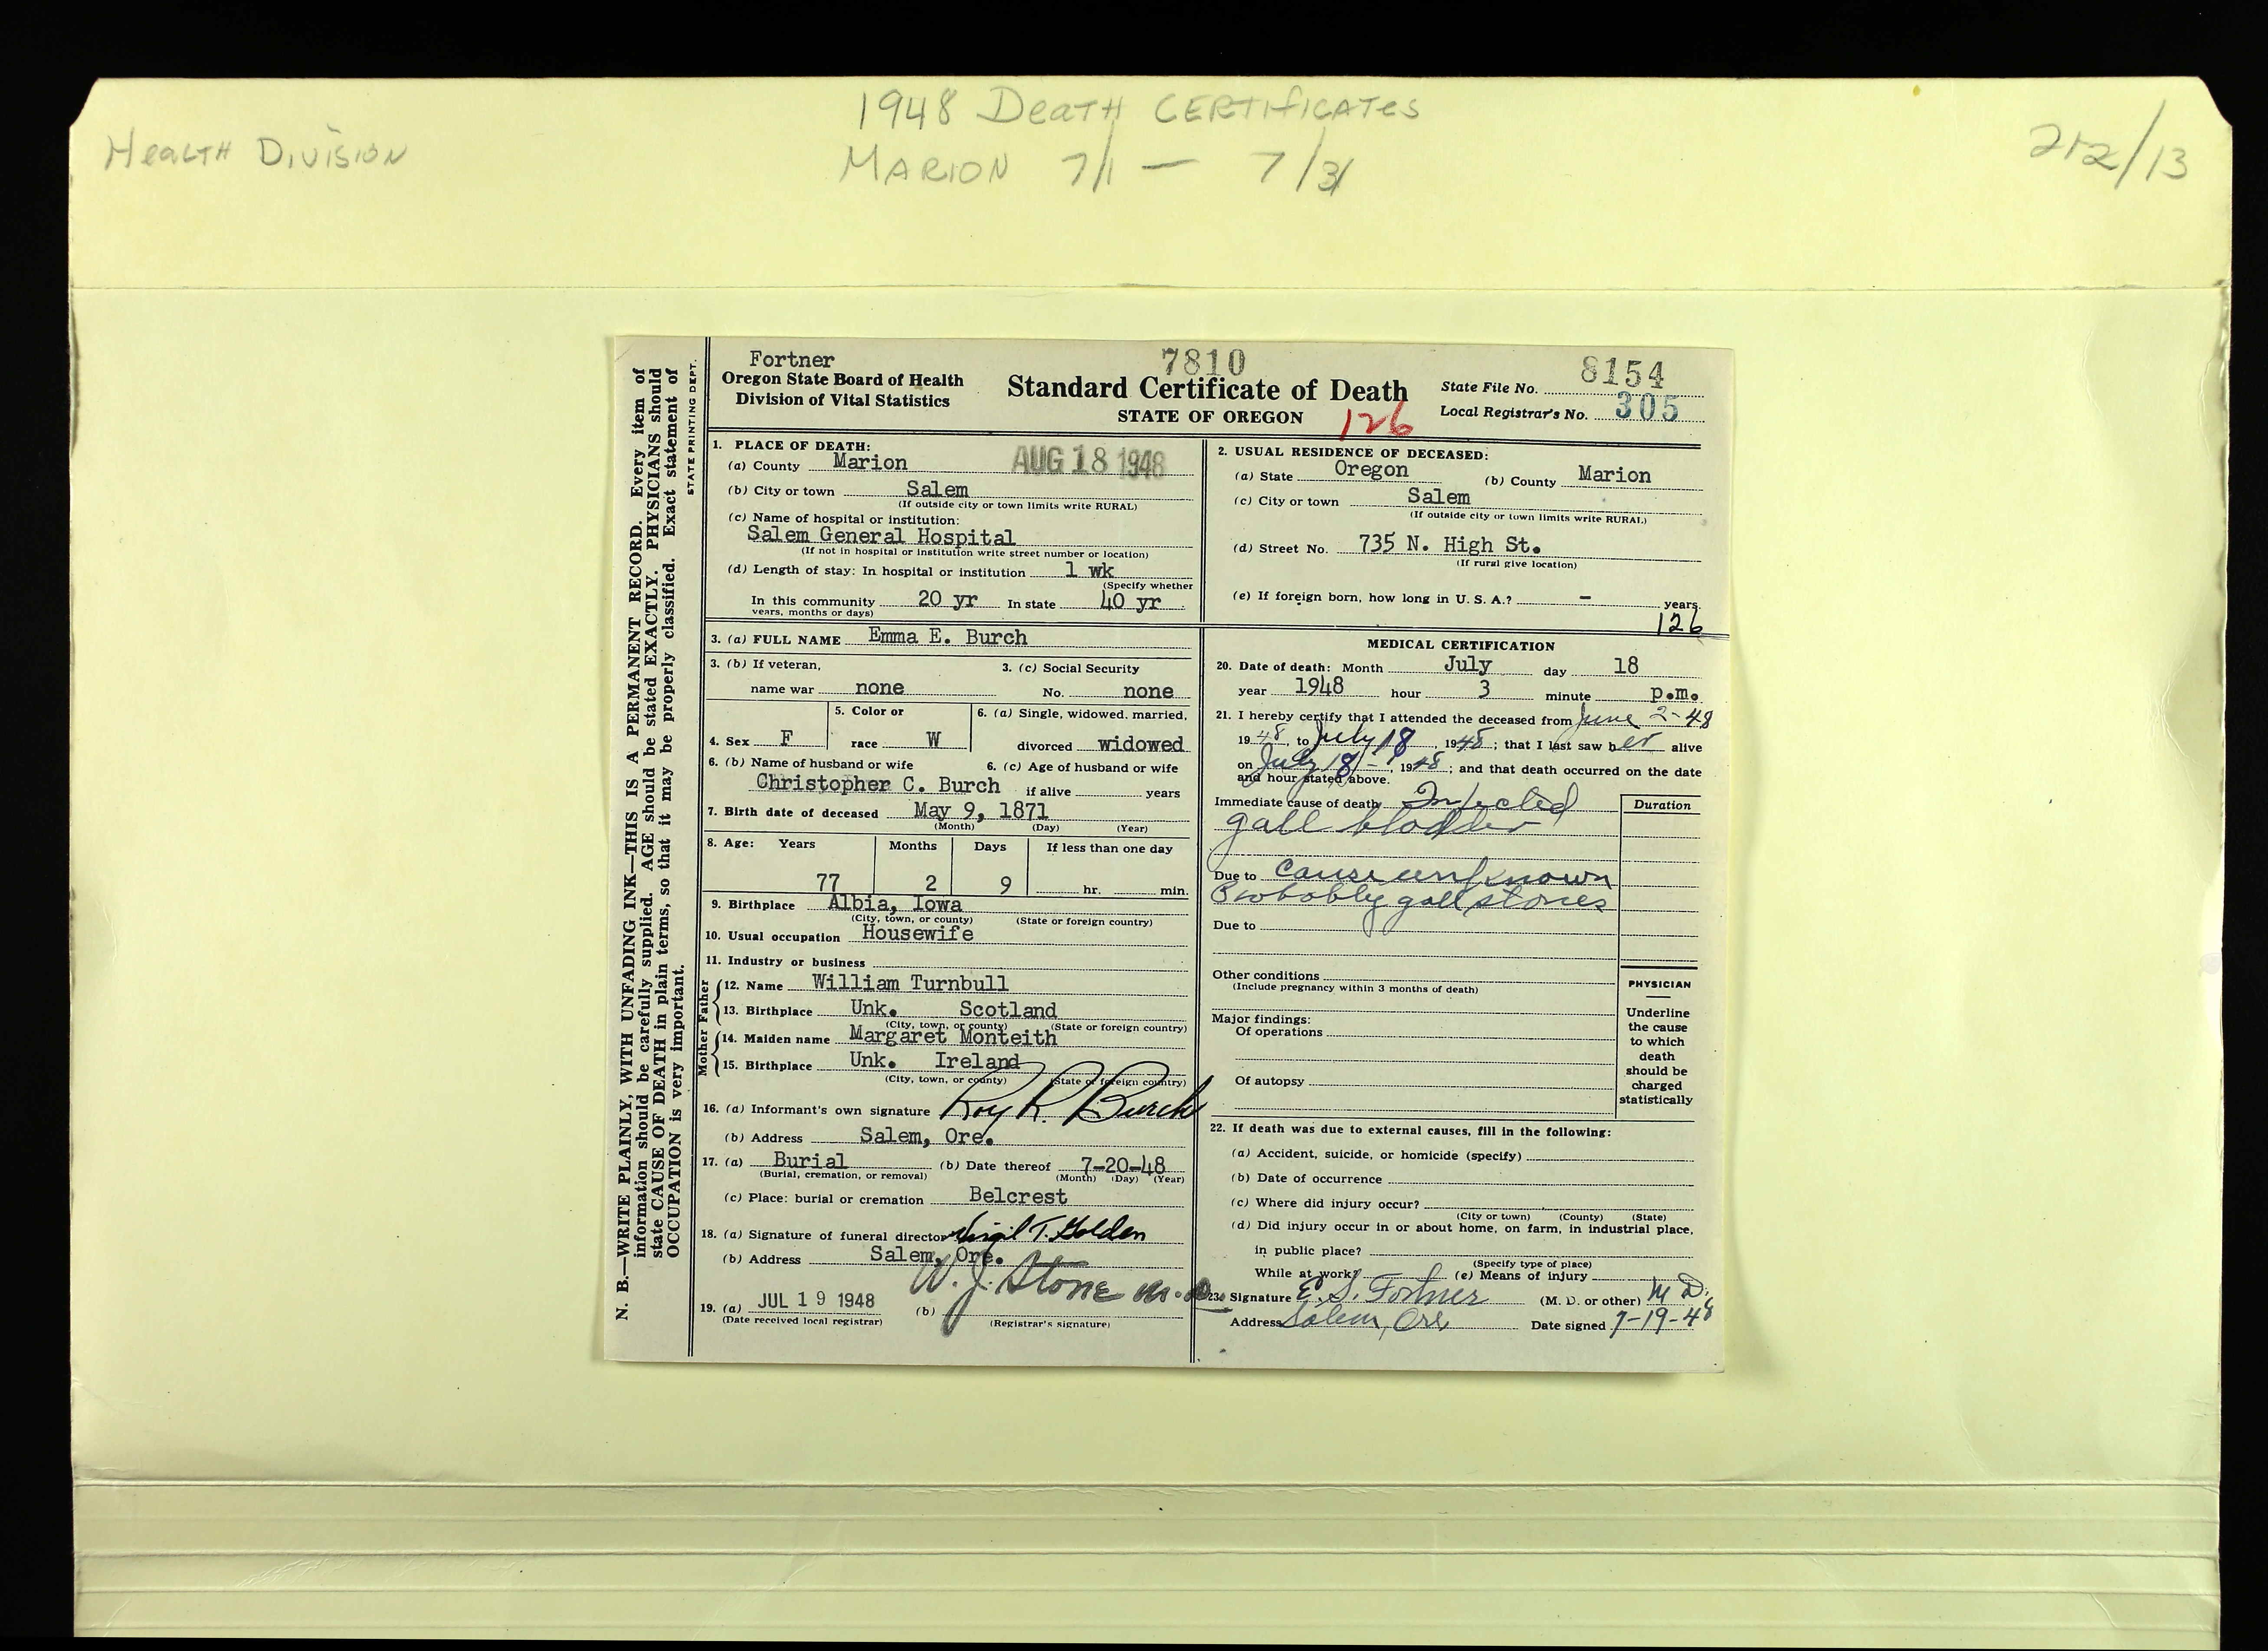 1948 Death Certificates
Health Division
Marion 7/1 — 7/31
212/13
N. B.—WRITE PLAINLY, WITH UNFADING INK—THIS IS A PERMANENT RECORD. Every item of
information should be carefully supplied. AGE should be stated EXACTLY. PHYSICIANS should
state CAUSE OF DEATH in plain terms, so that it may be properly classified. Exact statement of
OCCUPATION is very important.
STATE PRINTING DEPT.
Fortner
7810
8154
Oregon State Board of Health
Division of Vital Statistics
Standard Certificate of Death
STATE OF OREGON
126
State File No.
Local Registrar's No. 305
1. PLACE OF DEATH:
AUG 18 1948
(a) County Marion
(b) City or town Salem
(If outside city or town limits write RURAL)
(c) Name of hospital or institution:
Salem General Hospital
(If not in hospital or institution write street number or location)
(d) Length of stay: In hospital or institution 1 wk
(Specify whether
In this community 20 yr In state 40 yr
years, months or days)
2. USUAL RESIDENCE OF DECEASED:
(a) State Oregon (b) County Marion
(c) City or town Salem
(If outside city or town limits write RURAL)
(d) Street No. 735 N. High St.
(If rural give location)
(e) If foreign born, how long in U. S. A.? - years.
126
3. (a) FULL NAME Emma E. Burch
3. (b) If veteran, 3. (c) Social Security
name war none No. none
5. Color or 6. (a) Single, widowed, married,
4. Sex F race W divorced widowed
6. (b) Name of husband or wife 6. (c) Age of husband or wife
Christopher C. Burch if alive years
7. Birth date of deceased May 9, 1871
(Month) (Day) (Year)
8. Age: Years Months Days If less than one day
77 2 9 hr. min.
9. Birthplace Albia, Iowa
(City, town, or county) (State or foreign country)
10. Usual occupation Housewife
11. Industry or business
Father
12. Name William Turnbull
13. Birthplace Unk. Scotland
(City, town, or county) (State or foreign country)
Mother
14. Maiden name Margaret Monteith
15. Birthplace Unk. Ireland
(City, town, or county) (State or foreign country)
16. (a) Informant's own signature Roy R. Burch
(b) Address Salem, Ore.
17. (a) Burial (b) Date thereof 7-20-48
(Burial, cremation, or removal) (Month) (Day) (Year)
(c) Place: burial or cremation Belcrest
18. (a) Signature of funeral director Virgil T. Golden
(b) Address Salem, Ore.
W. J. Stone M.D.
19. (a) JUL 19 1948 (b)
(Date received local registrar) (Registrar's signature)
MEDICAL CERTIFICATION
20. Date of death: Month July day 18
year 1948 hour 3 minute p.m.
21. I hereby certify that I attended the deceased from June 2-48
1948, to July 18, 1948; that I last saw her alive
on July 18-, 1948; and that death occurred on the date
and hour stated above.
Immediate cause of death Infected
gall bladder
Duration
Due to Cause unknown
Probably gall stones
Due to
Other conditions
(Include pregnancy within 3 months of death)
Major findings:
Of operations
Of autopsy
PHYSICIAN
Underline
the cause
to which
death
should be
charged
statistically
22. If death was due to external causes, fill in the following:
(a) Accident, suicide, or homicide (specify)
(b) Date of occurrence
(c) Where did injury occur?
(City or town) (County) (State)
(d) Did injury occur in or about home, on farm, in industrial place,
in public place?
(Specify type of place)
While at work? (e) Means of injury
23. Signature E. S. Fortner (M. D. or other) M D.
Address Salem, Ore Date signed 7-19-48